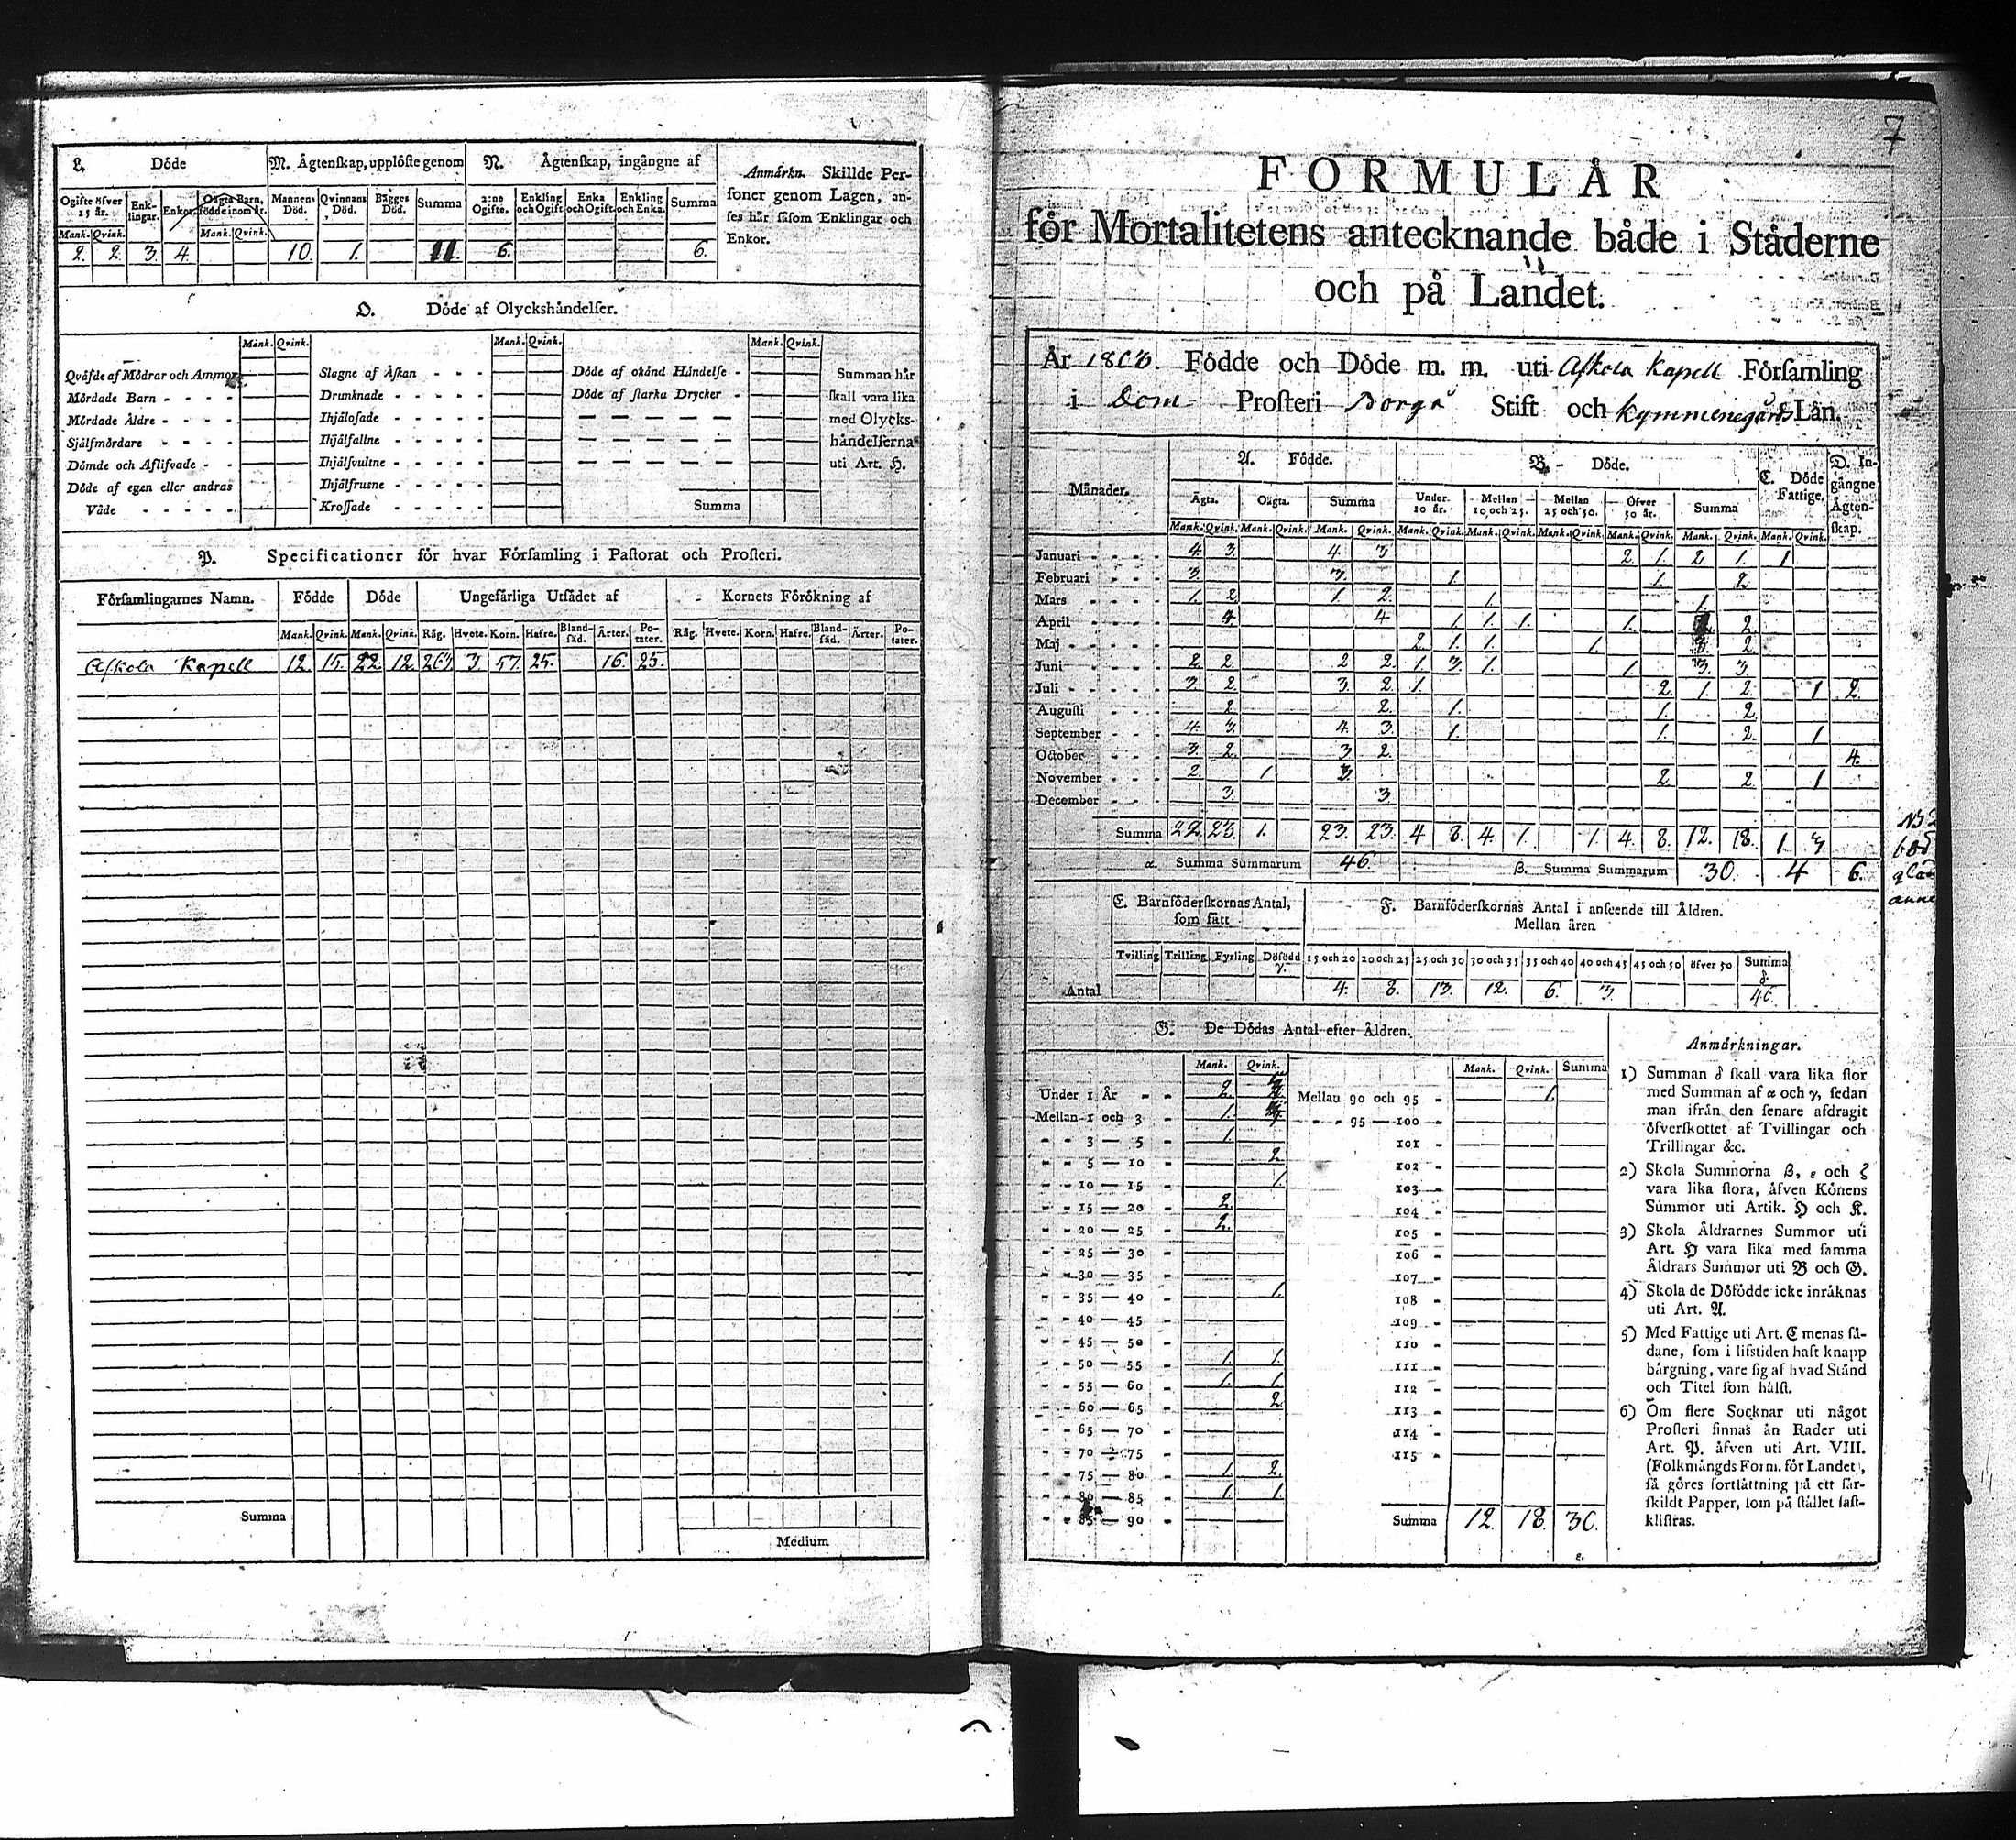 L. Döde
M. Ägtenskap, upplöste genom
N. Ägtenskap, ingångne af
Anmärkn. Skillde Per-
soner genom Lagen, an-
ses här såsom Enklingar och
Enkor.
Ogifte öfver 15 år. Enk-lingar. Enkor. Oägta Barn, födde inom år. Mannens Död. Qvinnans Död. Bägges Död. Summa 2:ne Ogifte. Enkling och Ogift. Enka och Ogift. Enkling och Enka. Summa
Mank. Qvink. Mank. Qvink.
2. 2. 3. 4. 10. 1. 11. 6. 6.
O. Döde af Olyckshändelser.
Mank. Qvink. Mank. Qvink. Mank. Qvink.
Qväfde af Mödrar och Ammor Slagne af Åskan Döde af okänd Händelse Summan här
Mördade Barn Drunknade Döde af starka Drycker skall vara lika
Mördade Äldre Ihjälosade med Olycks-
Sjålfmördare Ihjälfallne händelserna
Dömde och Aflifvade Ihjälsvultne uti Art. H.
Döde af egen eller andras Ihjälfrusne
Våde Krossade Summa
P. Specificationer för hvar Församling i Pastorat och Prosteri.
Församlingarnes Namn. Födde Döde Ungefärliga Utsädet af Kornets Förökning af
Mank. Qvink. Mank. Qvink. Råg. Hvete. Korn. Hafre. Bland-säd. Ärter. Po-tater. Råg. Hvete. Korn. Hafre. Bland-säd. Ärter. Po-tater.
Askola Kapell 12. 15. 22. 12. 3. 57. 25. 16. 25.
Summa
Medium
7
FORMULÄR
för Mortalitetens antecknande både i Städerne
och på Landet.
År Födde och Döde m. m. uti Askola Kapell Församling
i Dom Prosteri Borgå Stift och Kymmenegårds Län.
Månader. A. Födde. B. Döde. C. Döde Fattige. D. In-gångne Ägten-skap.
Ägta. Oägta. Summa Under 10 år. Mellan 10 och 25. Mellan 25 och 50. Öfver 50 år. Summa
Mank. Qvink. Mank. Qvink. Mank. Qvink. Mank. Qvink. Mank. Qvink. Mank. Qvink. Mank. Qvink. Mank. Qvink. Mank. Qvink.
Januari 4. 3. 4. 3 2. 1. 2. 1. 1
Februari 3. 3. 1. 1. 2
Mars 1. 2 1. 2. 1. 1.
April 4 4 1. 1. 1. 1. 2.
Maj 2. 1. 1. 1. 3. 2.
Juni 2. 2. 2 2. 1. 3. 1. 1. 3. 3.
Juli 3. 2. 3. 2. 1. 2. 1. 2. 1 2.
Augusti 2. 2. 1. 1. 2.
September 4. 3. 4. 3. 1. 1. 2. 1
October 3. 2. 3 2. 4.
November 2. 1 3. 2. 2. 1
December 3. 3
Summa 22. 23. 1. 23. 23. 4 8. 4. 1. 1. 4. 8. 12. 18. 1. 3
α. Summa Summarum 46. β. Summa Summarum 30. 4 6.
E. Barnföderskornas Antal, som fått
F. Barnföderskornas Antal i anseende till Åldren.
Mellan åren
Tvilling Trilling Fyrling Döfödd γ. 15 och 20 20 och 25 25 och 30 30 och 35 35 och 40 40 och 45 45 och 50 öfver 50 Summa δ
Antal 4. 8. 13. 12. 6. 3. 46.
G. De Dödas Antal efter Åldren.
Mank. Qvink. Mank. Qvink. Summa
Under 1 År 2. Mellan 90 och 95 1.
Mellan 1 och 3 1. 95 — 100
3 — 5 1. 101
5 — 10 2 102
10 — 15 1. 103
15 — 20 2. 104
20 — 25 2. 105
25 — 30 106
30 — 35 107
35 — 40 1. 108
40 — 45 109
45 — 50 110
50 — 55 1. 1. 111
55 — 60 1. 1. 112
60 — 65 2. 113
65 — 70 114
70 — 75 115
75 — 80 1. 2.
80 — 85 1. 1.
85 — 90 Summa 12. 18. 30.
ε.
Anmärkningar.
1) Summan δ skall vara lika stor
med Summan af α och γ, sedan
man ifrån den senare afdragit
öfverskottet af Tvillingar och
Trillingar &c.
2) Skola Summorna β, ε och ζ
vara lika stora, äfven Könens
Summor uti Artik. H och K.
3) Skola Åldrarnes Summor uti
Art. H vara lika med samma
Åldrars Summor uti B och G.
4) Skola de Döfödde icke inräknas
uti Art. A.
5) Med Fattige uti Art. C menas så-
dane, som i lifstiden haft knapp
bärgning, vare sig af hvad Stånd
och Titel som hälst.
6) Om flere Socknar uti något
Prosteri finnas än Rader uti
Art. P. äfven uti Art. VIII.
(Folkmängds Form. för Landet),
så göres fortsättning på ett sär-
skildt Papper, som på stället fast-
klistras.